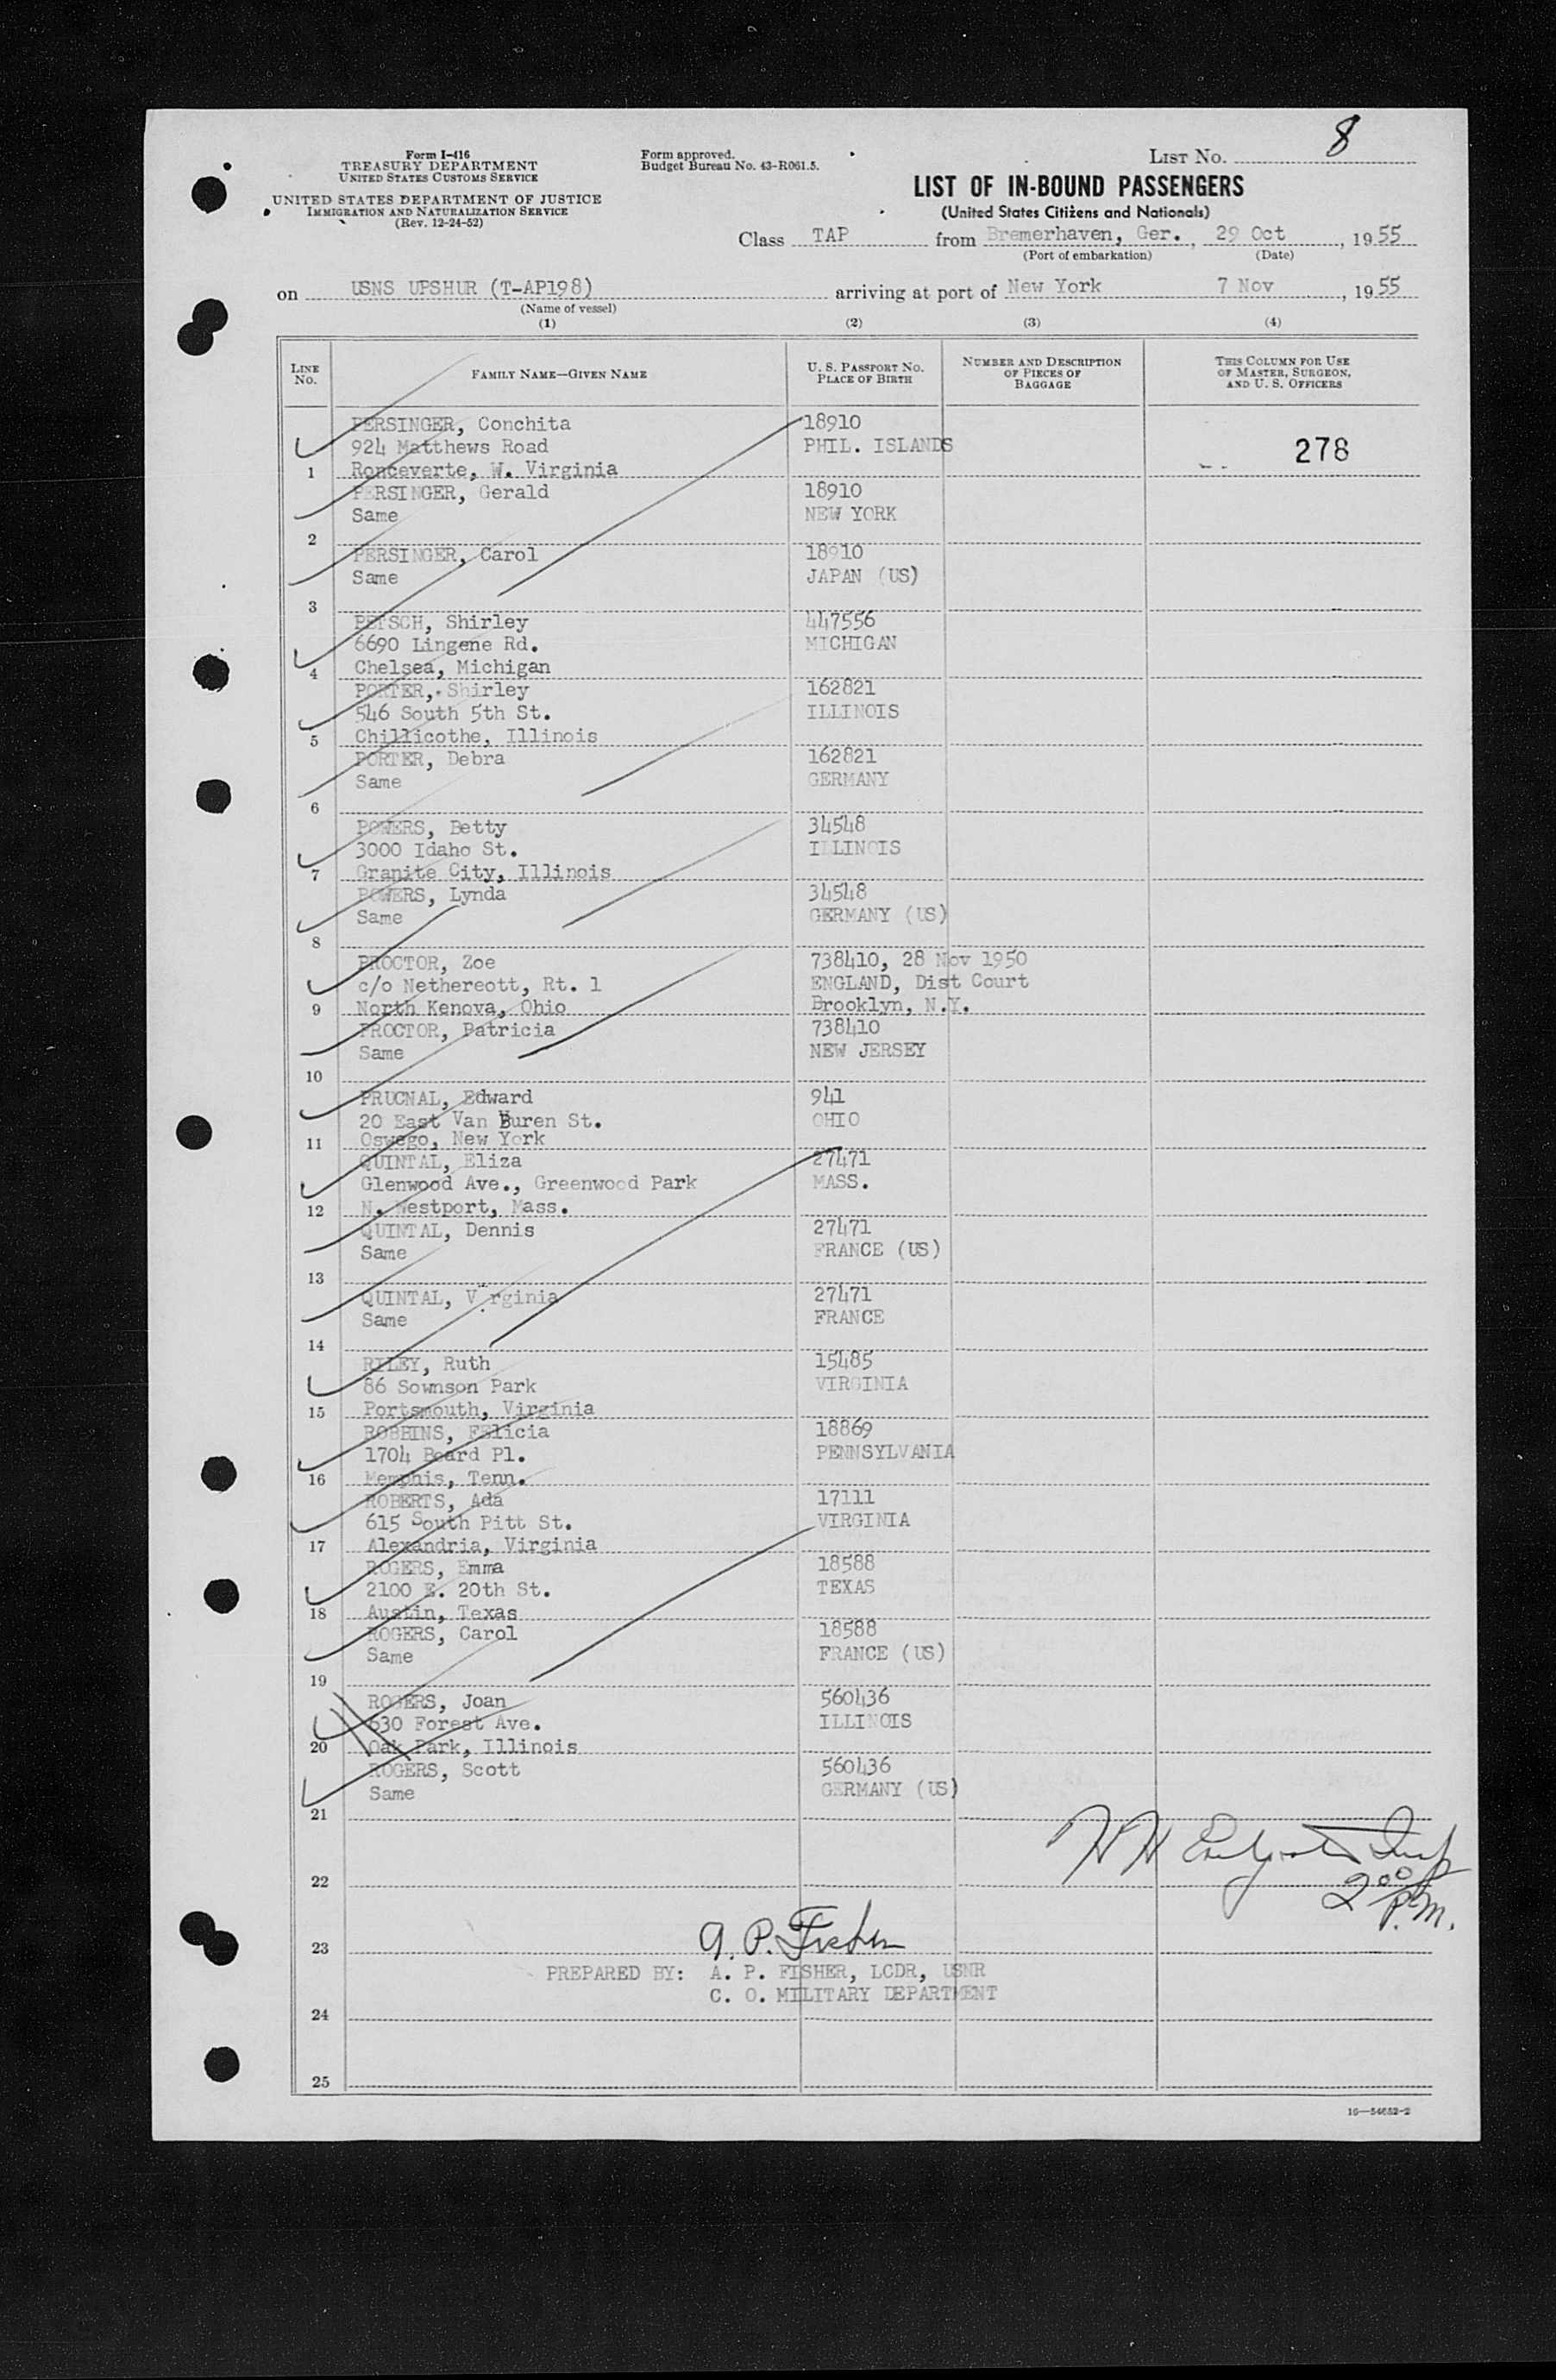 Form I-416
TREASURY DEPARTMENT
UNITED STATES CUSTOMS SERVICE
UNITED STATES DEPARTMENT OF JUSTICE
IMMIGRATION AND NATURALIZATION SERVICE
(Rev. 12-24-52)
Form approved.
Budget Bureau No. 43-R061.5.
LIST NO. 8
LIST OF IN-BOUND PASSENGERS
(United States Citizens and Nationals)
Class TAP from Bremerhaven, Ger., 29 Oct, 1955
(Port of embarkation) (Date)
on USNS UPSHUR (T-AP198) arriving at port of New York 7 Nov, 1955
(Name of vessel)
(1) (2) (3) (4)
LINE NO. FAMILY NAME—GIVEN NAME U. S. PASSPORT NO. PLACE OF BIRTH NUMBER AND DESCRIPTION OF PIECES OF BAGGAGE THIS COLUMN FOR USE OF MASTER, SURGEON, AND U. S. OFFICERS
PERSINGER, Conchita 18910
924 Matthews Road PHIL. ISLANDS 278
1 Ronceverte, W. Virginia
PERSINGER, Gerald 18910
Same NEW YORK
2
PERSINGER, Carol 18910
Same JAPAN (US)
3
PETSCH, Shirley 447556
6690 Lingene Rd. MICHIGAN
4 Chelsea, Michigan
PORTER, Shirley 162821
546 South 5th St. ILLINOIS
5 Chillicothe, Illinois
PORTER, Debra 162821
Same GERMANY
6
POWERS, Betty 34548
3000 Idaho St. ILLINOIS
7 Granite City, Illinois
POWERS, Lynda 34548
Same GERMANY (US)
8
PROCTOR, Zoe 738410, 28 Nov 1950
c/o Nethereott, Rt. 1 ENGLAND, Dist Court
9 North Kenova, Ohio Brooklyn, N.Y.
PROCTOR, Patricia 738410
Same NEW JERSEY
10
PRUCNAL, Edward 941
20 East Van Buren St. OHIO
11 Oswego, New York
QUINTAL, Eliza 27471
Glenwood Ave., Greenwood Park MASS.
12 N. Westport, Mass.
QUINTAL, Dennis 27471
Same FRANCE (US)
13
QUINTAL, Virginia 27471
Same FRANCE
14
RILEY, Ruth 15485
86 Sownson Park VIRGINIA
15 Portsmouth, Virginia
ROBBINS, FElicia 18869
1704 Beard Pl. PENNSYLVANIA
16 Memphis, Tenn.
ROBERTS, Ada 17111
615 South Pitt St. VIRGINIA
17 Alexandria, Virginia
ROGERS, Emma 18588
2100 E. 20th St. TEXAS
18 Austin, Texas
ROGERS, Carol 18588
Same FRANCE (US)
19
ROGERS, Joan 560436
630 Forest Ave. ILLINOIS
20 Oak Park, Illinois
ROGERS, Scott 560436
Same GERMANY (US)
21
H H Insp
22
2 00 P.M.
23 A. P. Fisher
PREPARED BY: A. P. FISHER, LCDR, USNR
C. O. MILITARY DEPARTMENT
24
25
16—54652-2